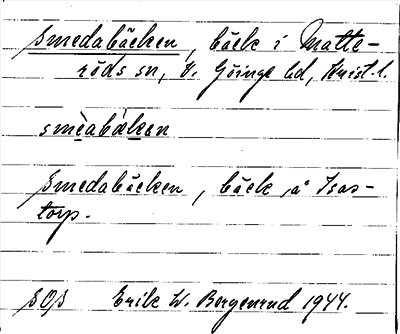 Smedabäcken, bäck i Matte-
röds sn, V. Göinge hd, Krist. l.
smèabækən
Smedabäcken, bäck å Isas-
torp.
SOS Erik W. Bergenrud 1944.